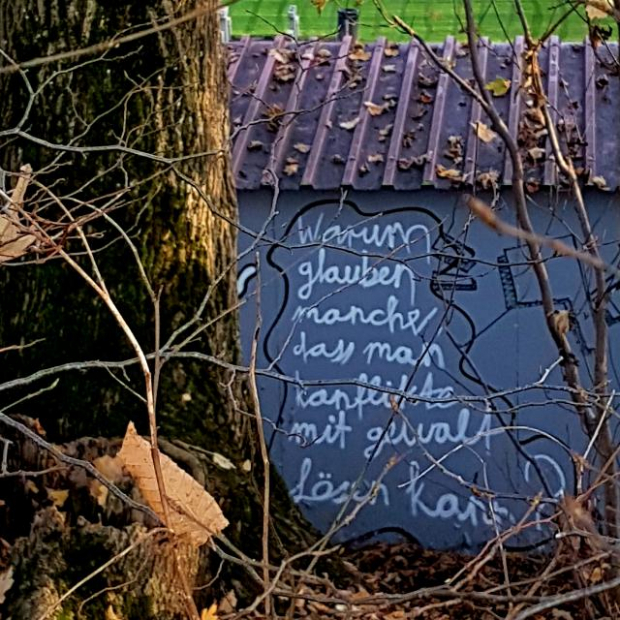 Warum
glauben
manche
dass man
konflikte
mit gewalt
Lösen kann?